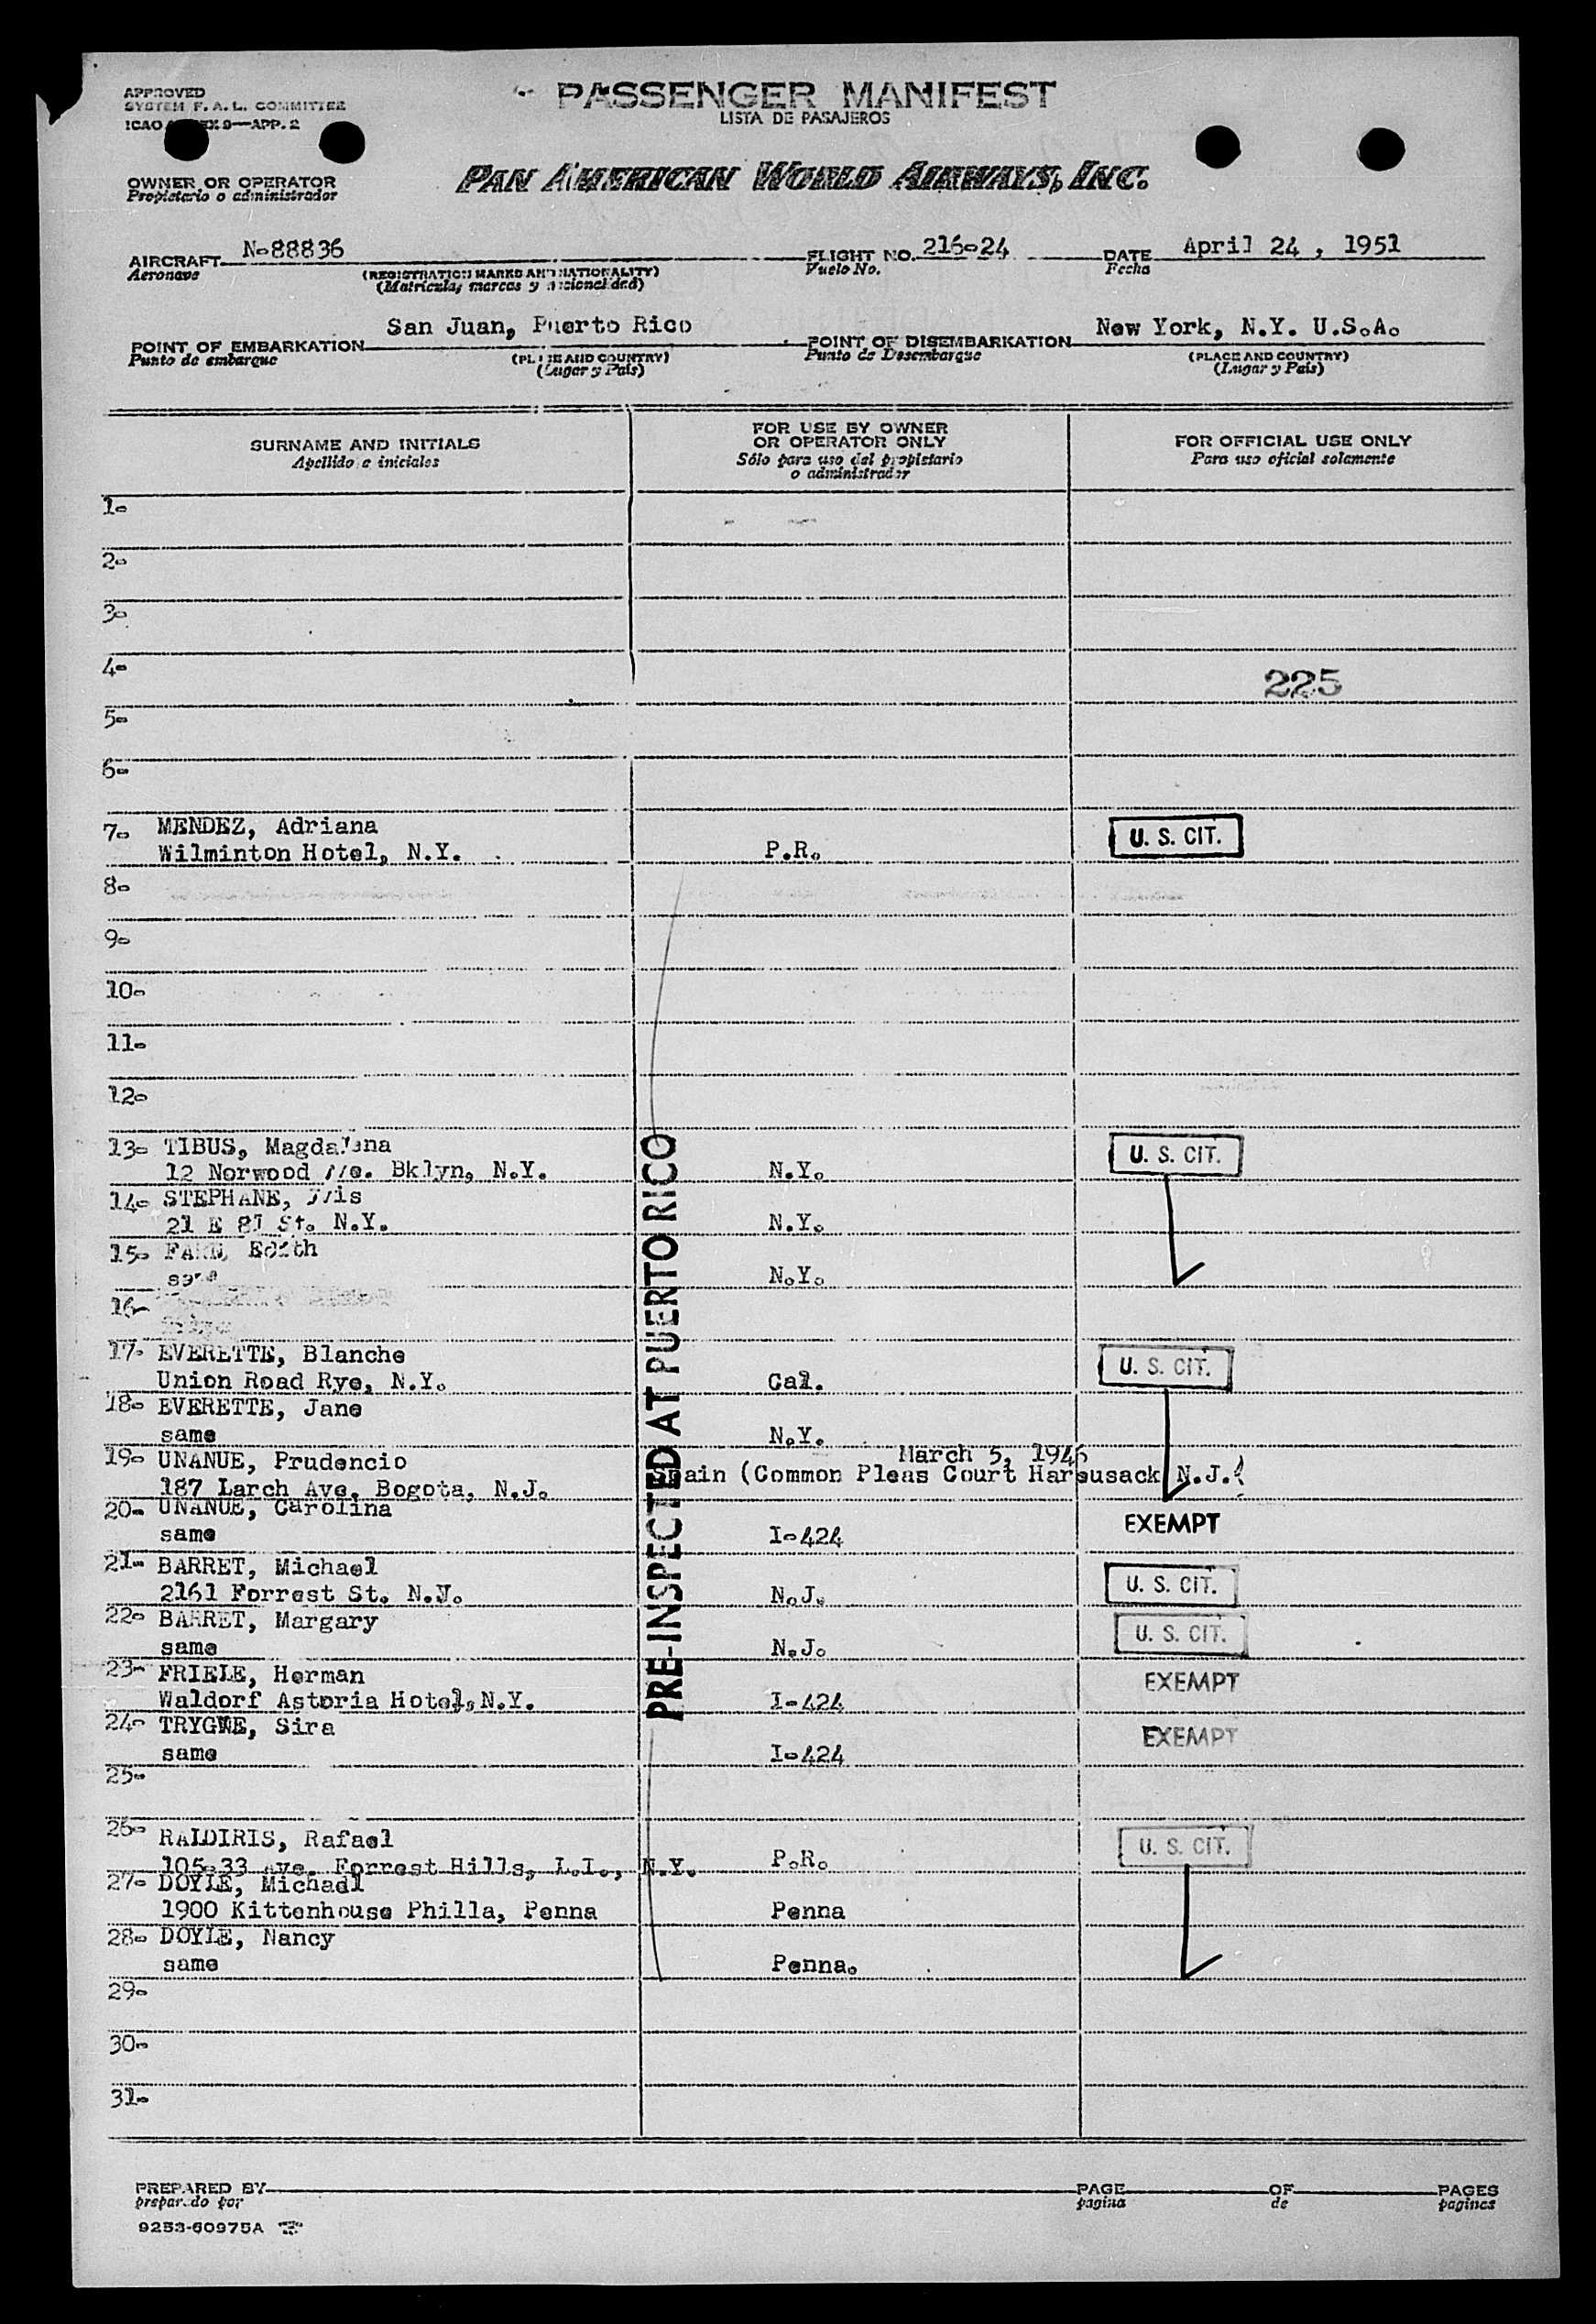 APPROVED
SYSTEM F. A. L. COMMITTEE
ICAO 9—APP. 2
PASSENGER MANIFEST
LISTA DE PASAJEROS
OWNER OR OPERATOR
Propietario o administrador
PAN AMERICAN WORLD AIRWAYS, INC.
AIRCRAFT N-88836
Aeronave
(REGISTRATION MARKS AND NATIONALITY)
(Matricula, marcas y nacionalidad)
FLIGHT NO. 216-24
Vuelo No.
DATE April 24 , 1951
Fecha
POINT OF EMBARKATION San Juan, Puerto Rico
Punto de embarque
(PLACE AND COUNTRY)
(Lugar y País)
POINT OF DISEMBARKATION New York, N.Y. U.S.A.
Punto de Desembarque
(PLACE AND COUNTRY)
(Lugar y País)
SURNAME AND INITIALS
Apellido e iniciales
FOR USE BY OWNER
OR OPERATOR ONLY
Sólo para uso del propietario
o administrador
FOR OFFICIAL USE ONLY
Para uso oficial solamente
1-
2-
3-
4-
225
5-
6-
7- MENDEZ, Adriana
Wilminton Hotel, N.Y. P.R. U. S. CIT.
8-
9-
10-
11-
12-
PRE-INSPECTED AT PUERTO RICO
13- TIBUS, Magdalena
12 Norwood Ave. Bklyn, N.Y. N.Y. U. S. CIT.
14- STEPHANE,
21 E 81 St. N.Y. N.Y.
15- Edith
same N.Y.
16-
17- EVERETTE, Blanche
Union Road Rye, N.Y. Cal. U. S. CIT.
18- EVERETTE, Jane
same N.Y.
19- UNANUE, Prudencio March 5, 1946
187 Larch Ave. Bogota, N.J. Spain (Common Pleas Court N.J.)
20- UNANUE, Carolina
same I-424 EXEMPT
21- BARRET, Michael
2161 Forrest St. N.J. N.J. U. S. CIT.
22- BARRET, Margary
same N.J. U. S. CIT.
23- FRIELE, Herman
Waldorf Astoria Hotel, N.Y. I-424 EXEMPT
24- TRYGVE, Sira
same I-424 EXEMPT
25-
26- RALDIRIS, Rafael
105-33 Ave. Forrest Hills, L.I., N.Y. P.R. U. S. CIT.
27- DOYLE, Michael
1900 Kittenhouse Philla, Penna Penna
28- DOYLE, Nancy
same Penna.
29-
30-
31-
PREPARED BY
preparado por
PAGE OF PAGES
pagina de paginas
9253-60975A